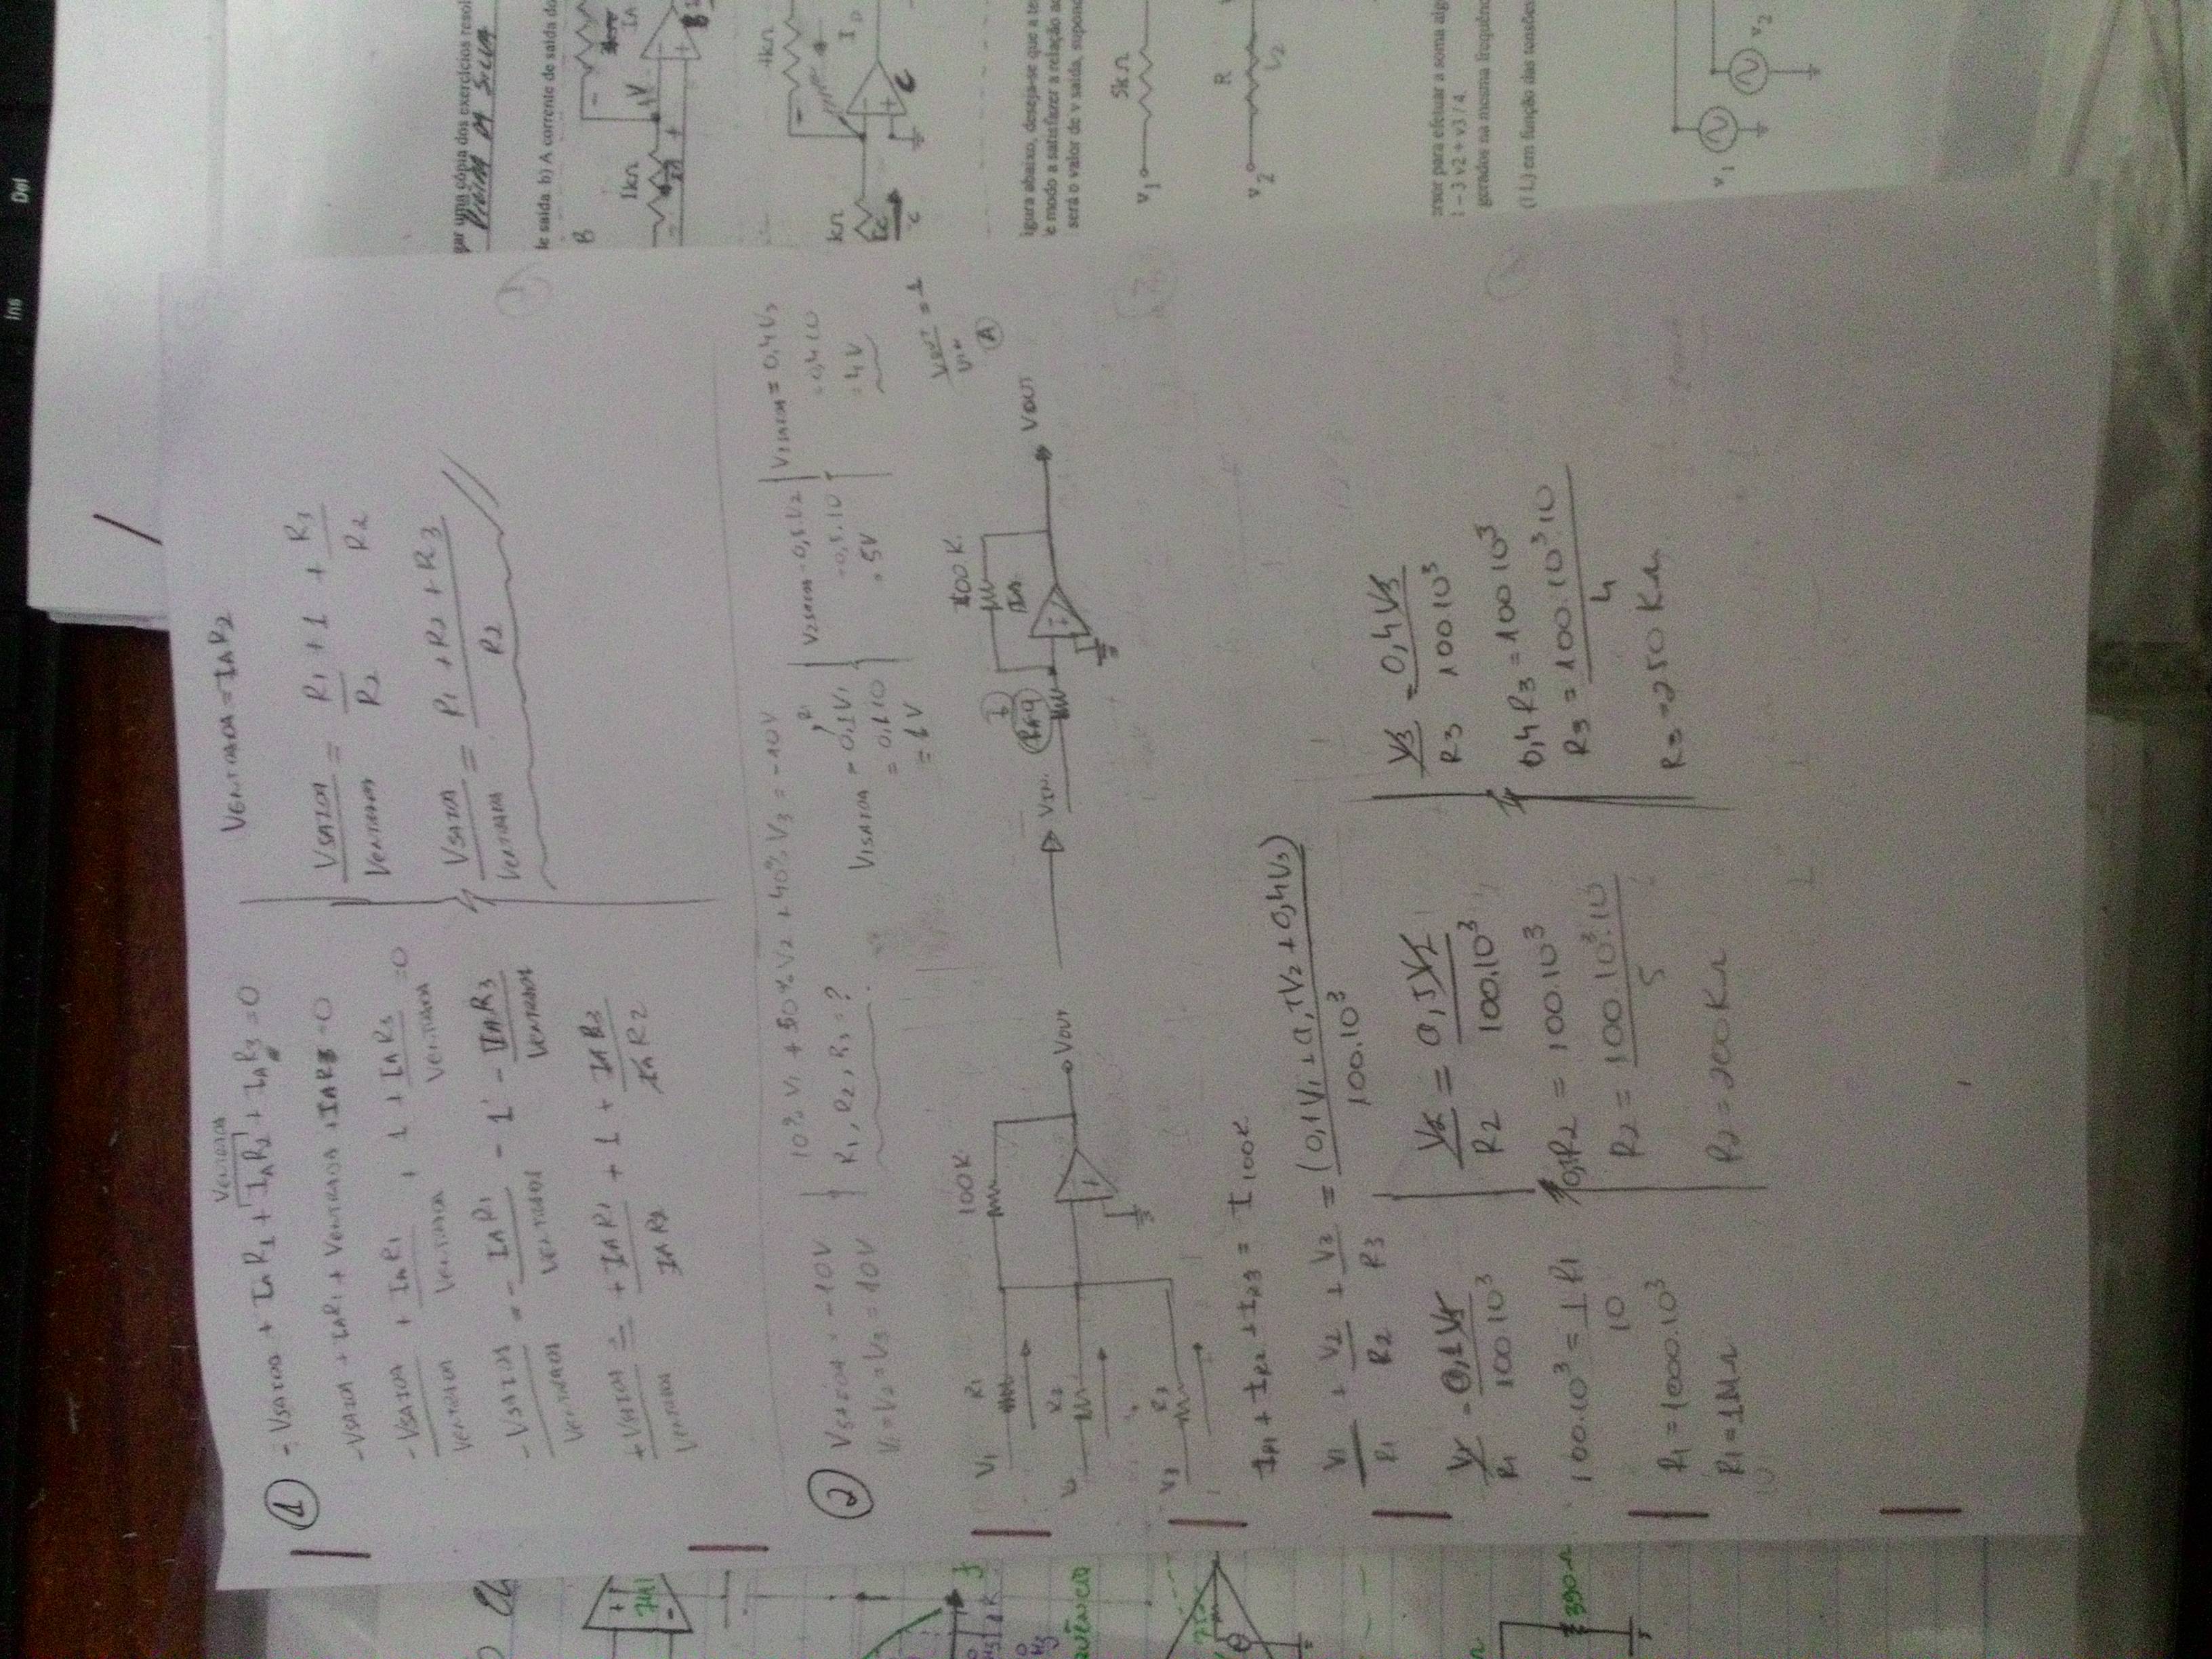 ① -VSAIDA + IA R1 + IA R2 + IA R3 = 0
VENTRADA
-VSAIDA + IAR1 + VENTRADA + IAR3 = 0
-VSAIDA/VENTRADA + IAR1/VENTRADA + 1 + IAR3/VENTRADA = 0
-VSAIDA/VENTRADA = -IAR1/VENTRADA - 1 - IAR3/VENTRADA
+VSAIDA/VENTRADA = +IAR1/IAR2 + 1 + IAR3/IAR2
VENTRADA = IAR2
VSAIDA/VENTRADA = R1/R2 + 1 + R3/R2
VSAIDA/VENTRADA = R1 + R2 + R3/R2
② VSAIDA = -10V
V1 = V2 = V3 = 10V
10% V1 + 50% V2 + 40% V3 = -10V
R1, R2, R3 = ?
V1SAIDA = 0,1V1
= 0,1.10
= 1V
V2SAIDA = 0,5V2
= 0,5.10
= 5V
V3SAIDA = 0,4V3
= 0,4.10
= 4V
100K
V1 R1
R2
V3 R3
VOUT
VIN
100K
IA
VOUT
VOUT/VIN = 1
Ⓐ
IR1 + IR2 + IR3 = I100K
V1/R1 + V2/R2 + V3/R3 = (0,1V1 + 0,5V2 + 0,4V3)/100.10³
V1/R1 = 0,1V1/100.10³
100.10³ = 1 R1/10
R1 = 1000.10³
R1 = 1MΩ
V2/R2 = 0,5V2/100.10³
0,5R2 = 100.10³
R2 = 100.10³.10/5
R2 = 200KΩ
V3/R3 = 0,4V3/100.10³
0,4R3 = 100.10³
R3 = 100.10³.10/4
R3 = 250KΩ
Ins
Del
uma cópia dos exercícios
DA SILVA
le saída b) A corrente de saída do
B
1kΩ
1V
IA
kΩ
C
igura abaixo, deseja-se que a
e modo a satisfazer a relação
será o valor de v saída,
v1
5kΩ
v2
R
para efetuar a soma
- 3 v2 + v3 / 4.
gerados na mesma frequência
(IL) em função das tensões
v1
v2
741
390Ω